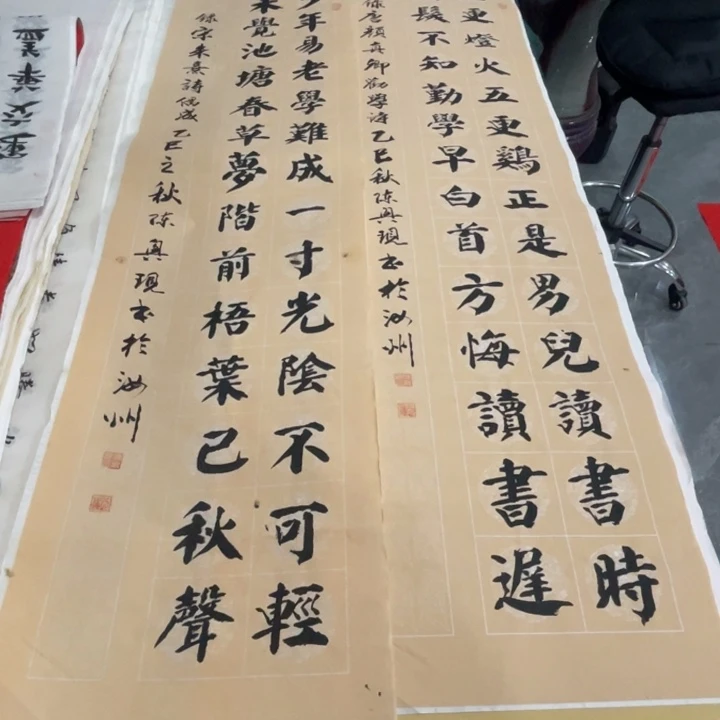 更燈火五更鷄正是男兒讀書時
髮不知勤學早白首方悔讀書遲
錄唐顏真卿勸學詩乙巳秋陈興現书於汝州
少年易老學難成一寸光陰不可輕
未覺池塘春草夢階前梧葉已秋聲
錄宋朱熹詩偶成乙巳之秋陈興現书於汝州